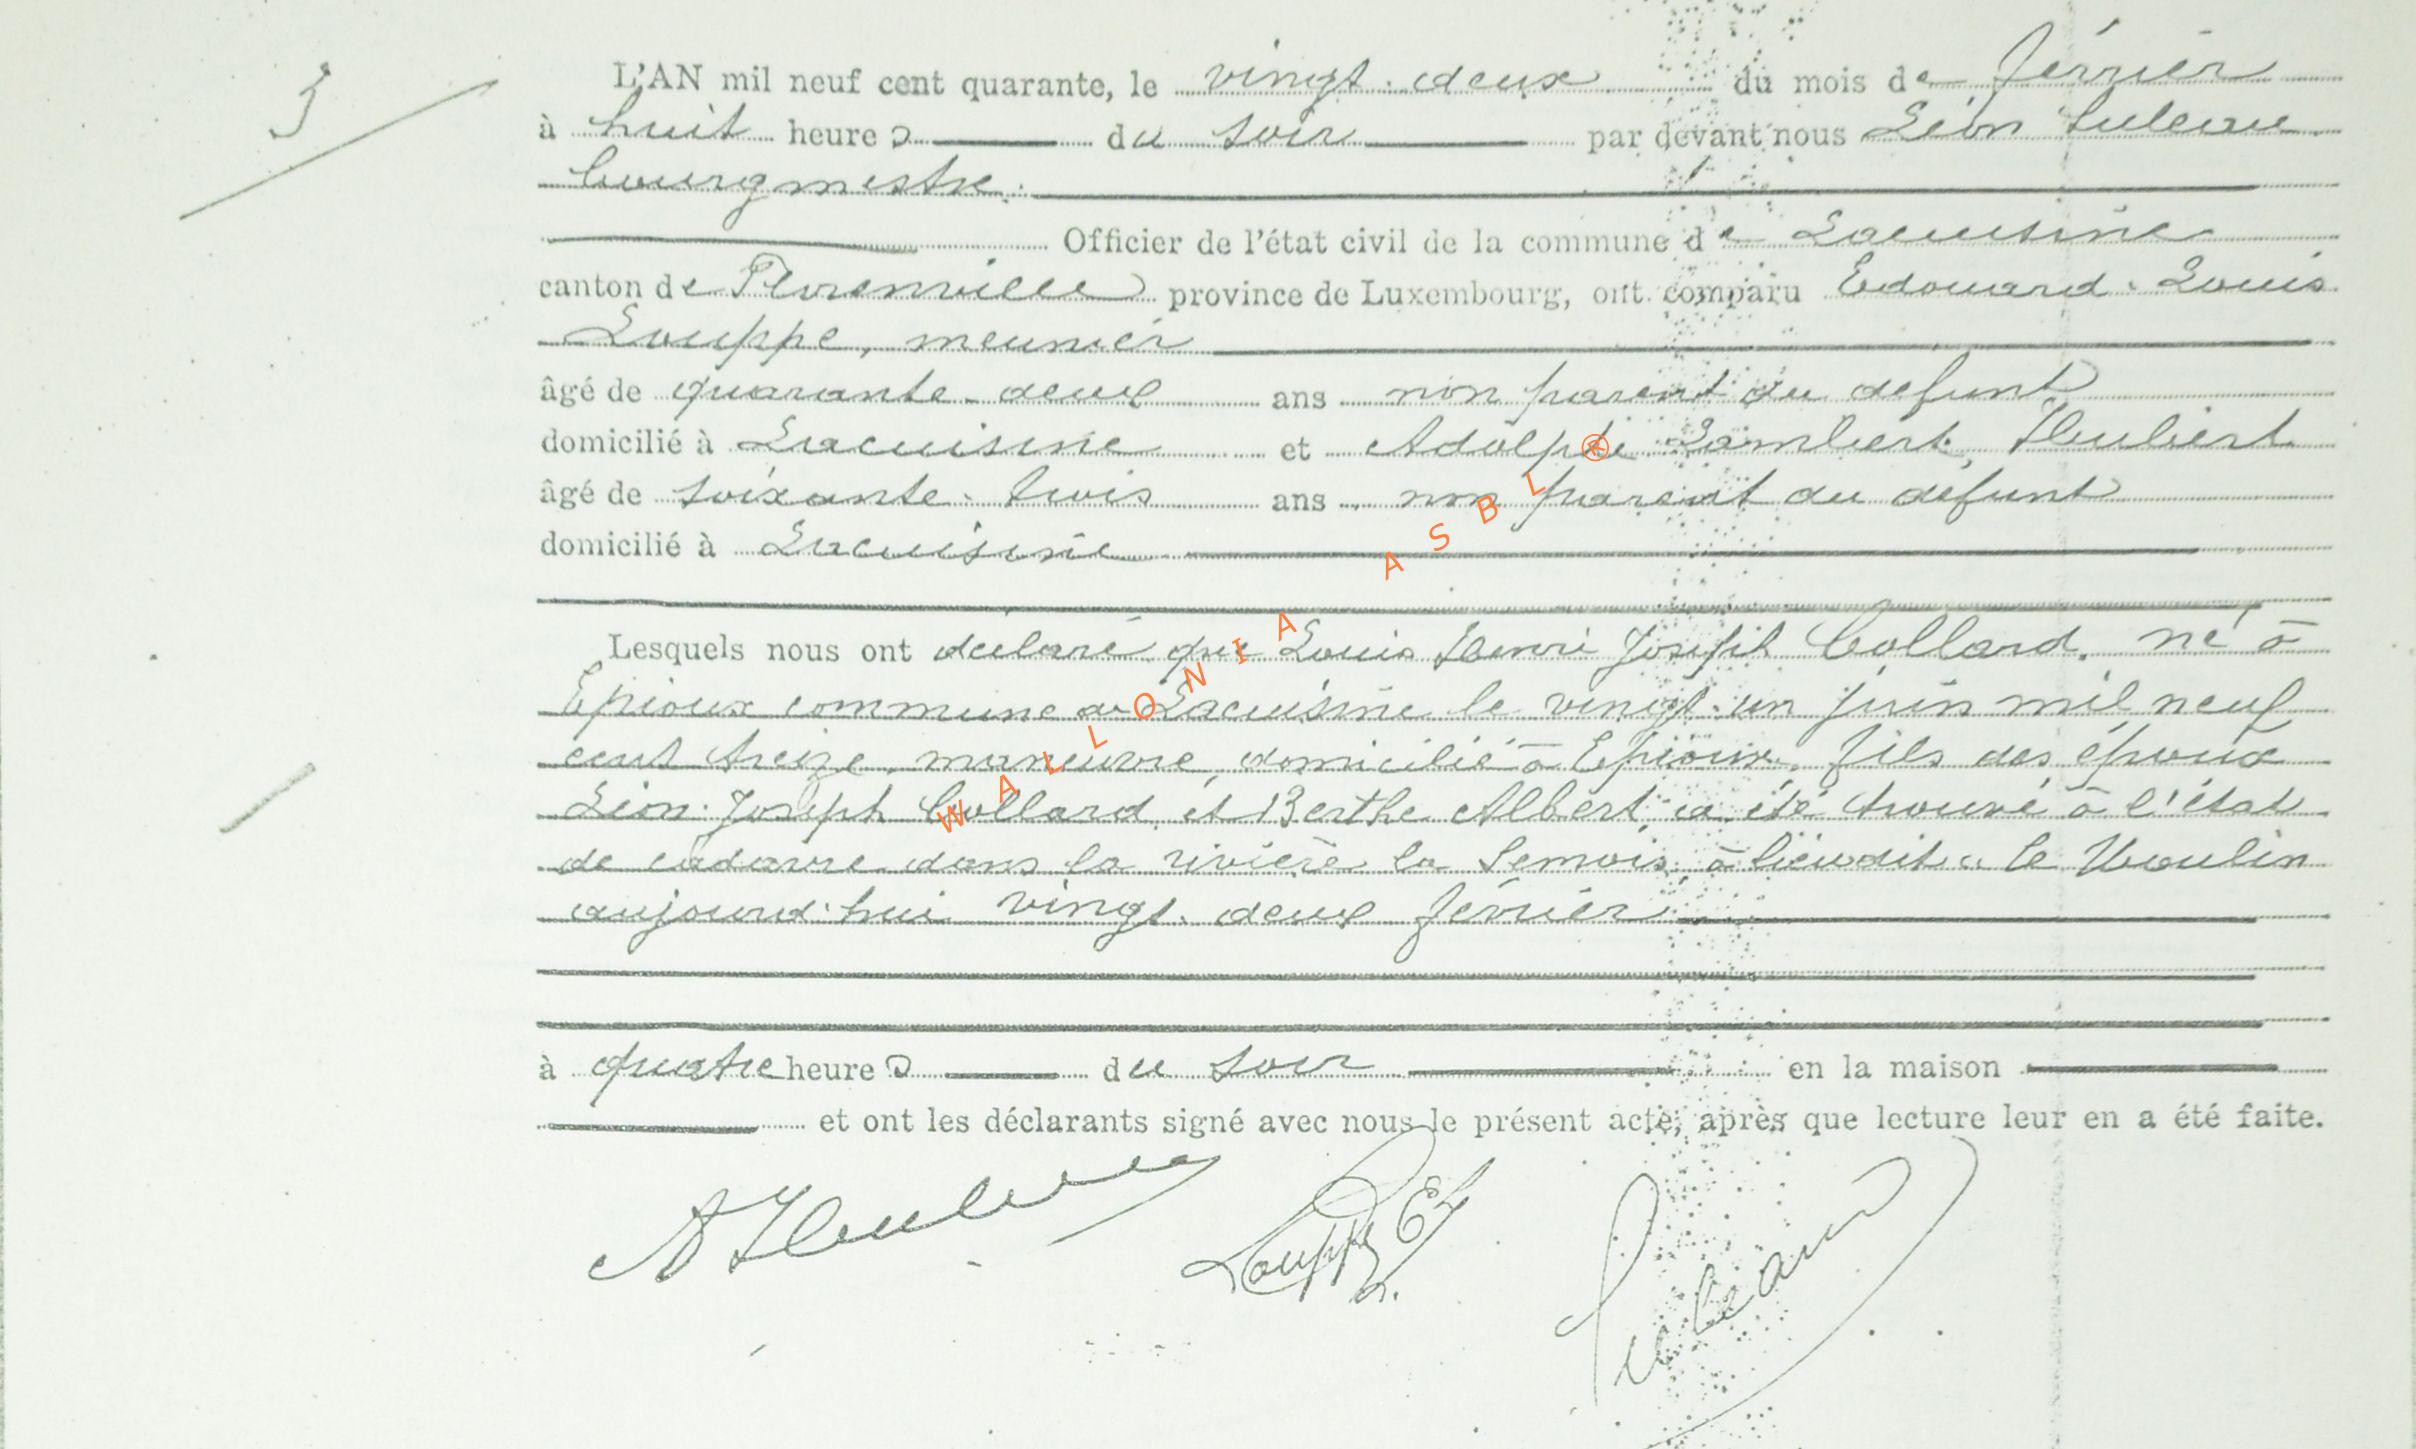 3
L'AN mil neuf cent quarante, le vingt-deux du mois de février
à huit heures du soir par devant nous Léon
bourgmestre.
Officier de l'état civil de la commune de Lacuisine
canton de Florenville province de Luxembourg, ont comparu Edouard-Louis
Louppe, meunier
âgé de quarante-deux ans non parent du défunt
domicilié à Lacuisine et Adolphe Lambert Hubert
âgé de soixante-trois ans non parent du défunt
domicilié à Lacuisine
Lesquels nous ont déclaré que Louis Henri Joseph Collard, né à
Epioux commune de Lacuisine le vingt-un juin mil neuf
cent treize, manœuvre, domicilié à Epioux, fils des époux
Léon-Joseph Collard et Berthe Albert, a été trouvé à l'état
de cadavre dans la rivière la Semois à lieudit "le Moulin
aujourd'hui vingt-deux février
à quatre heures du soir en la maison
et ont les déclarants signé avec nous le présent acte, après que lecture leur en a été faite.
Louppe E L
WALLONIA ASBL ®